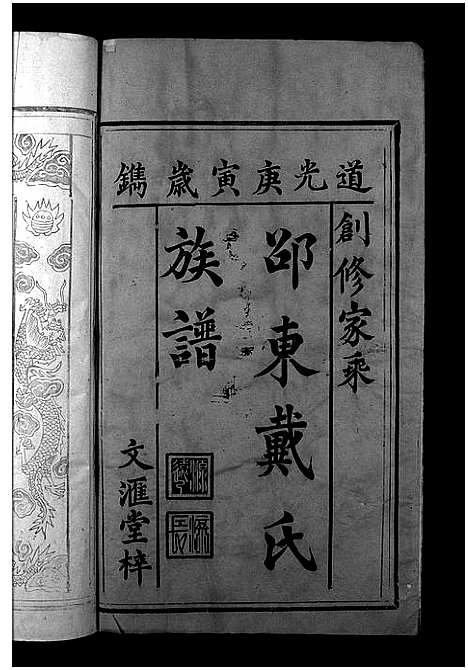 道光庚寅歲鐫
創修家乘
邵東戴氏
族譜
文滙堂梓